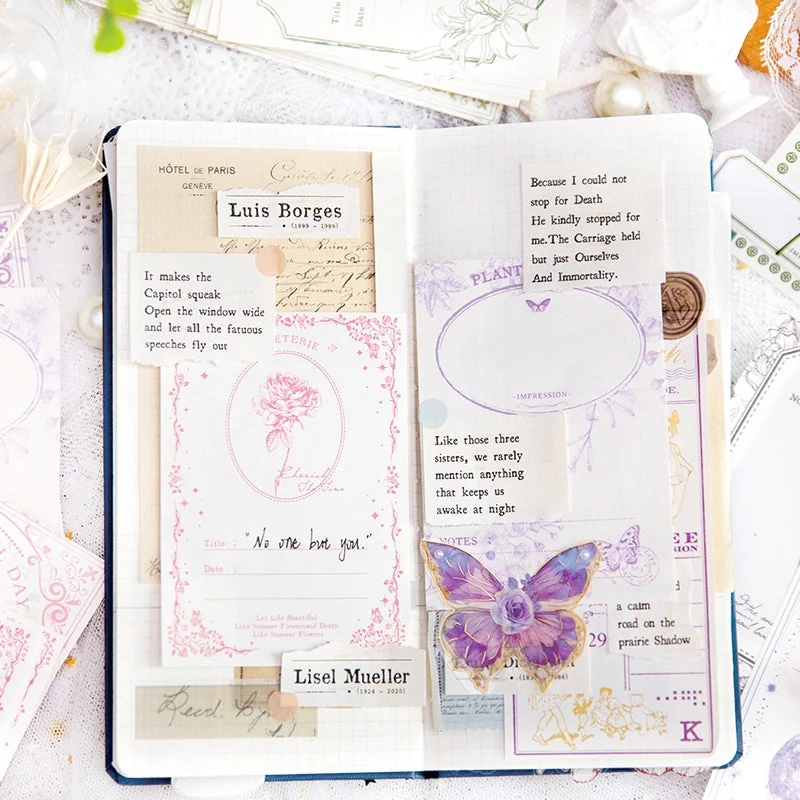 Title :
Date :
HÔTEL DE PARIS
GENÈVE
Luis Borges
(1899 - 1986)
It makes the
Capitol squeak
Open the window wide
and let all the fatuous
speeches fly out
Title : "No one but you."
Date :
Let Life Beautiful
Like Summer Flowers and Death
Like Summer Flowers
Lisel Mueller
(1924 - 2020)
Recd.
Because I could not
stop for Death
He kindly stopped for
me.The Carriage held
but just Ourselves
And Immortality.
PLANT
-IMPRESSION-
Like those three
sisters, we rarely
mention anything
that keeps us
awake at night
NOTES :
a calm
road on the
prairie Shadow
29
K
DAY